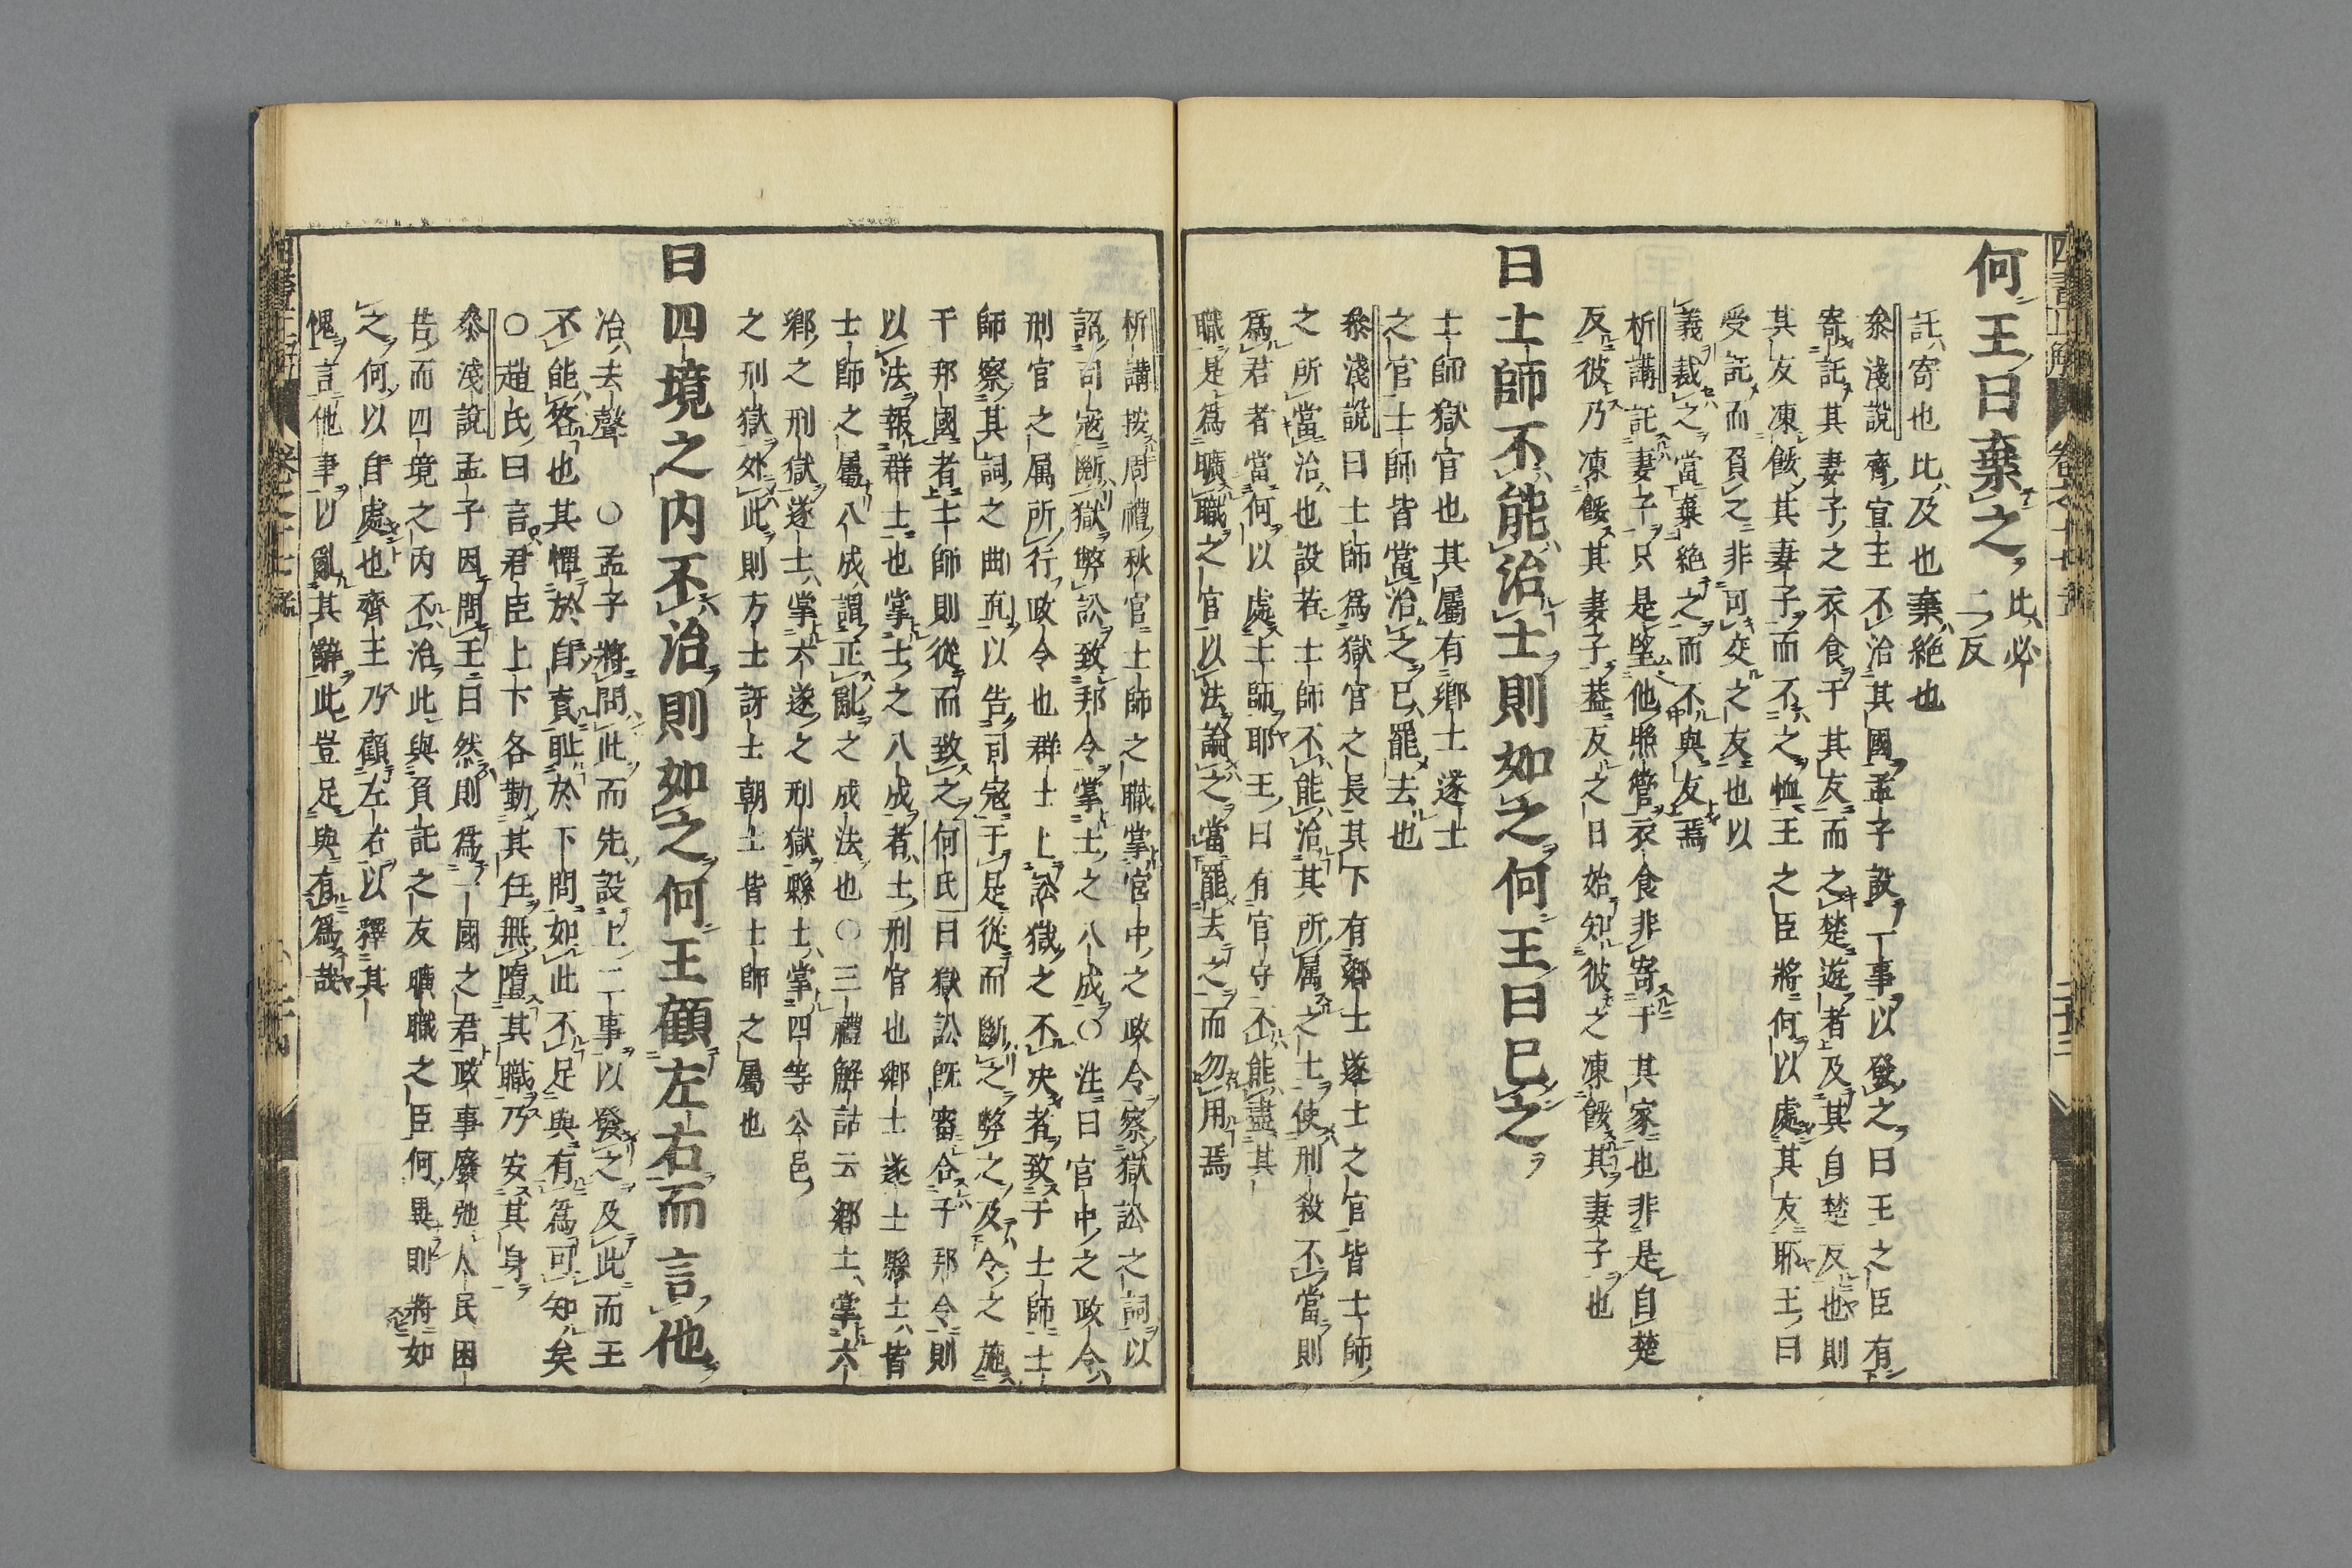 何王曰棄之 比必二反
託寄也比及也棄絶也
叅淺説齊宣王不治其國孟子設丁事以發之曰王之臣有
寄託其妻子之衣食于其友而之楚遊者及其自楚反也則
其友凍餒其妻子而不之恤王之臣將何以處其友耶王曰
受託而負之非可交之友也以
義裁之當棄絶之而不與友焉
析講託妻子只是望他照管衣食非寄于其家也非是自楚
反彼乃凍餒其妻子葢反之日始知彼之凍餒其妻子也
曰士師不能治士則如之何王曰已之
士師獄官也其屬有鄉士遂士
之官士師皆當治之已罷去也
叅淺説曰士師為獄官之長其下有鄉士遂士之官皆士師
之所當治也設若士師不能治其所属之士使刑殺不當則
爲君者當何以處士師耶王曰有官守不能盡其
職是爲曠職之官以法論之當罷去之而勿用焉
析講按周禮秋官士師之職掌官中之政令察獄訟之詞以
詔司寇斷獄弊訟致邦令掌士之八成〇注曰官中之政令
刑官之属所行政令也群士上訟獄之不决者致于士師士
師察其詞之曲直以告司寇于是從而斷之弊之及令之施
于邦國者士師則從而致之何氏曰獄訟既審合于邦令則
以法報群士也掌士之八成者士刑官也鄉士遂士縣士皆
士師之屬八成謂正亂之成法也〇三禮解詁云鄉士掌六
鄉之刑獄遂士掌六遂之刑獄縣士掌四等公邑
之刑獄処此則方士訝士朝士皆士師之屬也
曰四境之内不治則如之何王顧左右而言他
治去聲 〇孟子將問此而先設上二事以發之及此而王
不能答也其憚於自責恥於下問如此不足與有爲可知矣
〇趙氏曰言君臣上下各勤其任無墮其職乃安其身
叅淺説孟子因問王曰然則爲一國之君政事廢弛人民困
苦而四境之内不治此與負託之友曠職之臣何異則將如
之何以自處也齊王乃顧左右以釋其
愧言他事以亂其辭此豈足與有爲哉